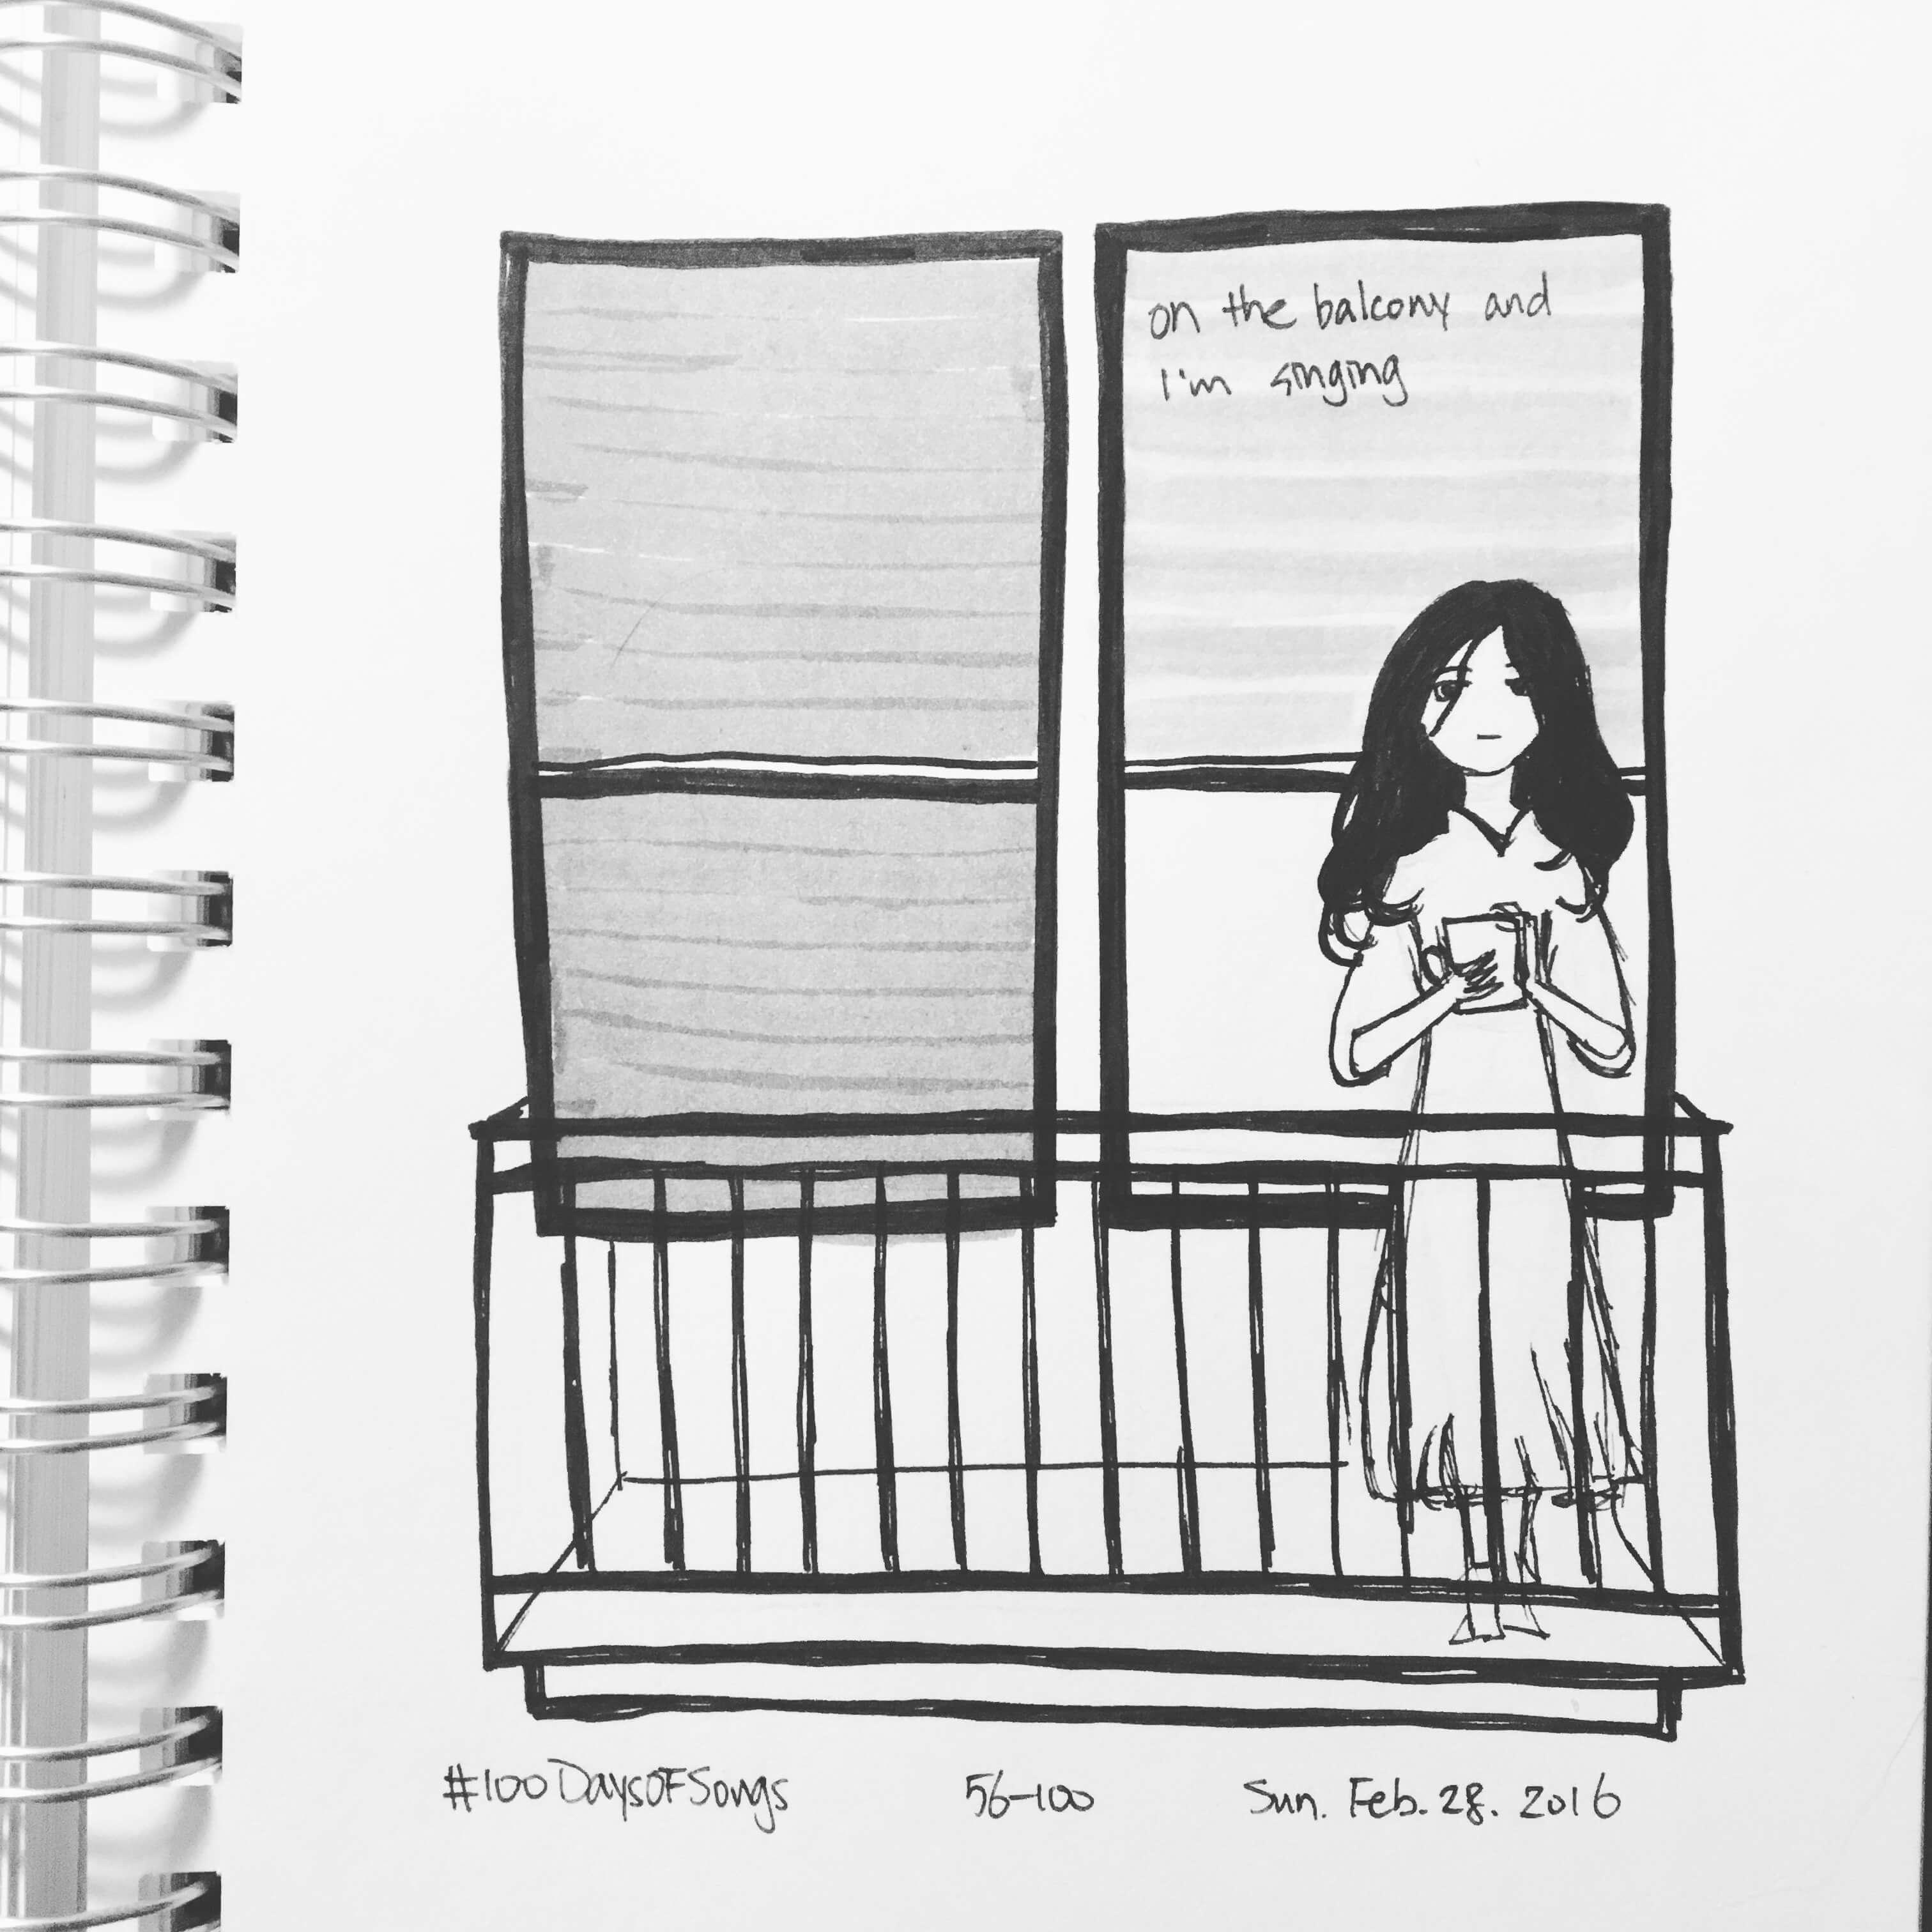 on the balcony and
I'm singing
#100DaysOFSongs 56-100 Sun. Feb. 28. 2016